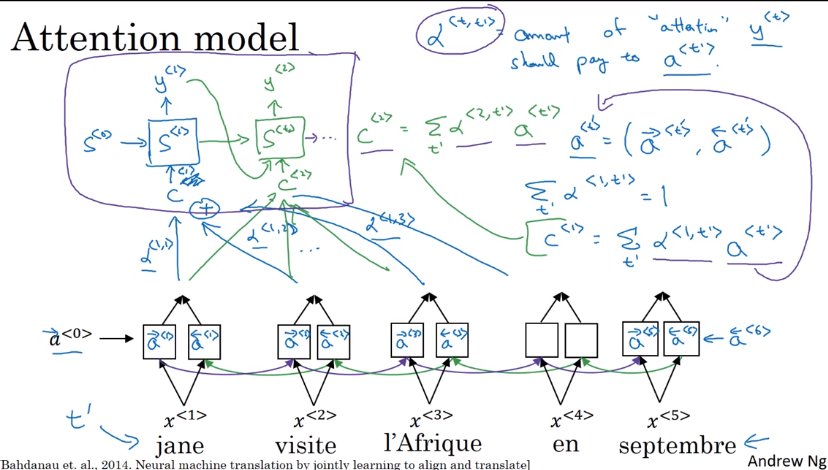 Attention model
α^{<t,t'>} = amount of "attention" y^{<t>}
should pay to a^{<t'>}.
y^{<1>} y^{<2>}
S^{<0>} → S^{<1>} → S^{<2>} → ...
C^{<1>} C^{<2>}
C^{<2>} = Σ_{t'} α^{<2,t'>} a^{<t'>}
a^{<t'>} = (→a^{<t'>}, ←a^{<t'>})
Σ_{t'} α^{<1,t'>} = 1
C^{<1>} = Σ_{t'} α^{<1,t'>} a^{<t'>}
+
α^{<1,1>} α^{<1,2>} ... α^{<1,3>}
→a^{<0>} →a^{<1>} ←a^{<1>} →a^{<2>} ←a^{<2>} →a^{<3>} ←a^{<3>} →a^{<5>} ←a^{<5>} ← ←a^{<6>}
x^{<1>} x^{<2>} x^{<3>} x^{<4>} x^{<5>}
t'
jane visite l'Afrique en septembre
[Bahdanau et. al., 2014. Neural machine translation by jointly learning to align and translate]
Andrew Ng